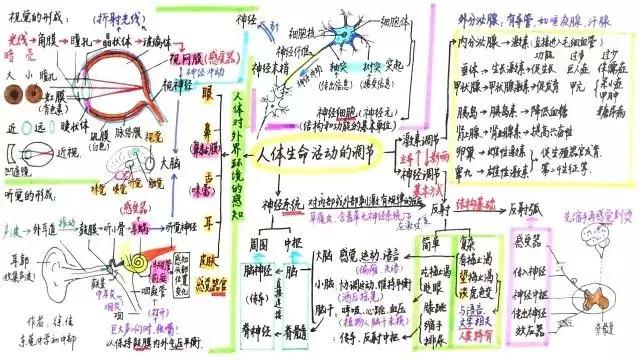 视觉的形成：
(折射光线)
光线→角膜→瞳孔→晶状体→玻璃体
暗 亮
视网膜(感受器)
神经冲动
视神经
大 小 瞳孔
虹膜
(有色素)
近 远 晶状体
巩膜
(白色)
脉络膜
视觉
近视
凹透镜
大脑
嗅觉
味觉
触觉
听觉的形成：
(感受器)
声波→外耳道
振动
鼓膜→听小骨→耳蜗→听神经
耳郭
(收集声波)
鼓室
咽
咽鼓管
感知
头部
位置
变化
作者：徐佳
巨大声响时，张嘴！
以保持鼓膜内外气压平衡。
眼
鼻
(鼻黏膜)
舌
(味蕾)
耳
皮肤
感受器官
人体对外界环境的感知
神经元
细胞体
细胞核
神经纤维
神经末梢
轴突
树突
突起
神经细胞(神经元)
(结构和功能的基本单位)
人体生命活动的调节
激素调节
主导
影响
神经调节
基本方式
外分泌腺，有导管，如唾液腺，汗腺
内分泌腺→激素(直接进入毛细血管)
功能 过多 过少
垂体→生长激素→促生长 巨人症 侏儒症
甲状腺→甲状腺激素→促发育 甲亢
呆小症
胰岛→胰岛素→降低血糖 糖尿病
肾上腺→肾上腺素→提高兴奋性
卵巢→雌性激素
睾丸→雄性激素
促生殖器官发育，
第二性征等。
神经系统
对内部或外部刺激有规律的
草履虫、含羞草无神经系统
反射
结构基础
反射弧
周围 中枢
脑神经
(传导)
脊神经
脑
脊髓
大脑 感觉、运动、语言
小脑 协调运动、维持平衡
脑干 呼吸、心跳、血压
传导、反射中枢
简单
眨眼
膝跳
缩手
排尿
复杂
望梅止渴
谈虎色变
与语言
文字相关
人类特有
感受器
传入神经
神经中枢
传出神经
效应器
先缩手再感觉到烫